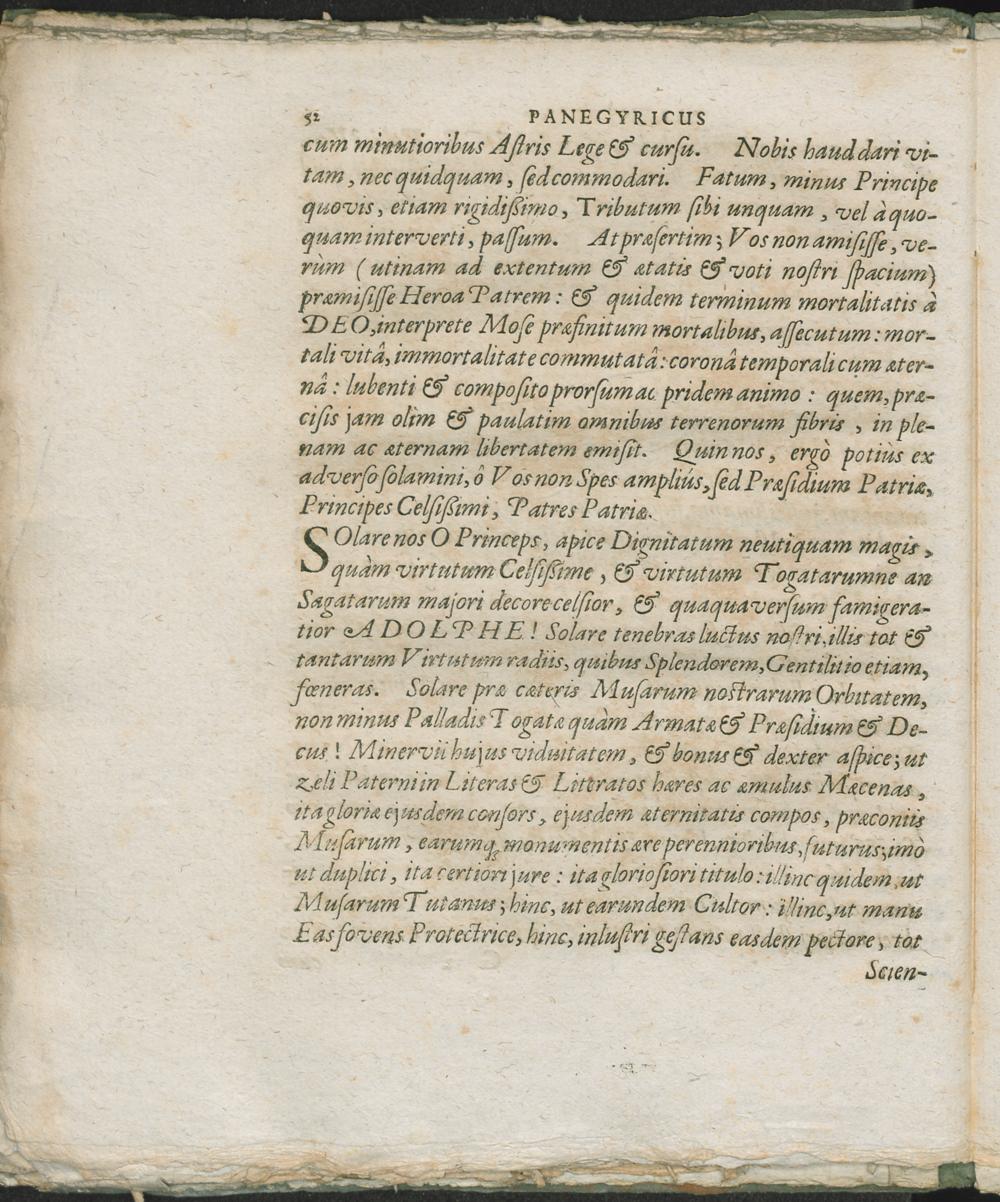 52 PANEGYRICUS
cum minutioribus Aſtris Lege & curſu. Nobis haud dari vi-
tam, nec quidquam, ſed commodari. Fatum, minus Principe
quovis, etiam rigidiſsimo, Tributum ſibi unquam, vel à quo-
quam interverti, paſſum. At præſertim; Vos non amiſiſſe, ve-
rùm (utinam ad extentum & ætatis & voti noſtri ſpacium)
præmiſiſſe Heroa Patrem: & quidem terminum mortalitatis à
DEO, interprete Moſe præfinitum mortalibus, aſſecutum: mor-
tali vitâ, immortalitate commutatâ: coronâ temporali cum æter-
nâ: lubenti & compoſito prorſum ac pridem animo: quem, præ-
ciſis jam olim & paulatim omnibus terrenorum fibris, in ple-
nam ac æternam libertatem emiſit. Quin nos, ergò potiùs ex
adverſo ſolamini, ô Vos non Spes ampliús, ſed Præſidium Patriæ,
Principes Celſiſsimi, Patres Patriæ.
SOlare nos O Princeps, apice Dignitatum neutiquam magis,
quàm virtutum Celſiſsime, & virtutum Togatarumne an
Sagatarum majori decore celſior, & quaquaverſum famigera-
tior ADOLPHE! Solare tenebras luctus noſtri, illis tot &
tantarum Virtutum radiis, quibus Splendorem, Gentilitio etiam,
fœneras. Solare præ cæteris Muſarum noſtrarum Orbitatem,
non minus Palladis Togatæ quàm Armatæ & Præſidium & De-
cus! Minervii hujus viduitatem, & bonus & dexter aſpice; ut
zeli Paterni in Literas & Literatos hæres ac æmulus Mæcenas,
ita gloriæ ejusdem conſors, ejusdem æternitatis compos, præconiis
Muſarum, earumq; monumentis ære perennioribus, futurus; imò
ut duplici, ita certiori jure: ita glorioſiori titulo: illinc quidem, ut
Muſarum Tutanus; hinc, ut earundem Cultor: illinc, ut manu
Eas fovens Protectrice, hinc, inluſtri geſtans easdem pectore, tot
Scien-